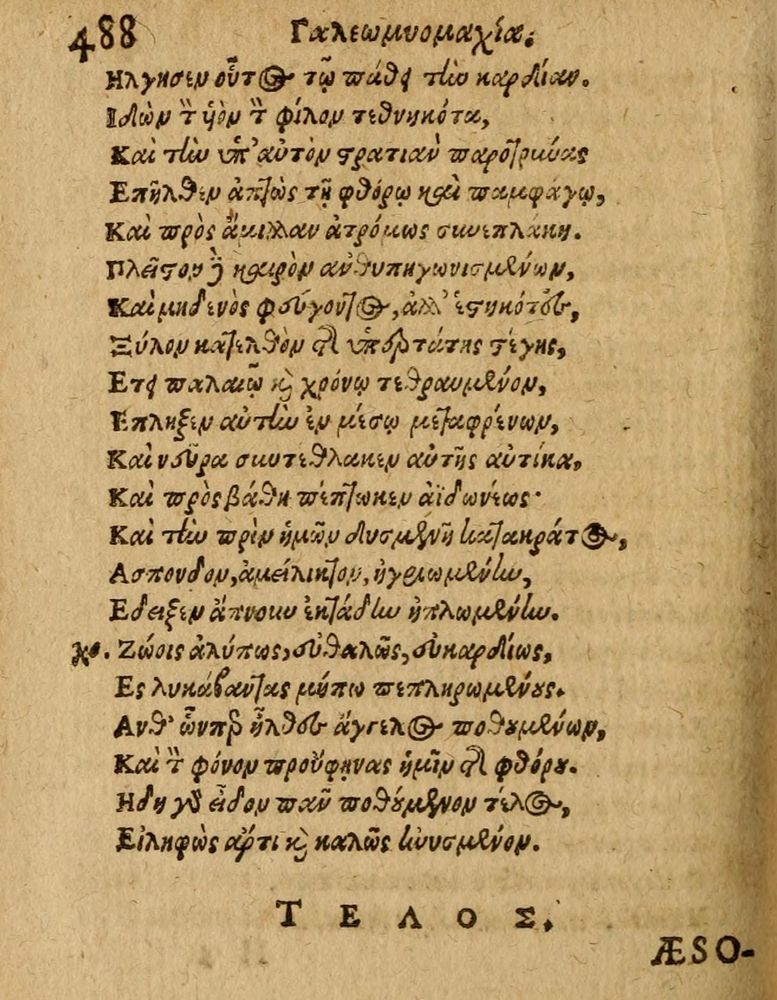 488 Γαλεωμυομαχία.
Ηλγησεν οὗτος τῷ πάθει τὴν καρδίαν.
Ιδὼν τὸν ὑὸν τὸν φίλον τεθνηκότα,
Καὶ τὴν ὑπ' αὐτὸν στρατιὰν παροτρύνας
Επῆλθεν ἀπτὼς τῇ φθόρῳ καὶ παμφάγῳ,
Καὶ πρὸς ἅμιλλαν ἀτρόμως συνεπλάκη.
Πλεῖστον δὲ καιρὸν ἀνθυπηγωνισμένων,
Καὶ μηδενὸς φεύγοντος, ἀλλ' ἑστηκότος,
Ξύλον κατελθὸν τῆς ὑπερτάτης στέγης,
Ετει παλαιῷ καὶ χρόνῳ τεθραυμένον,
Επληξεν αὐτὴν ἐν μέσῳ μεταφρένων,
Καὶ νεῦρα συντέθλακεν αὐτῆς αὐτίκα,
Καὶ πρὸς βάθη πέπτωκεν ἀϊδωνέως·
Καὶ τὴν πρὶν ἡμῶν δυσμενῆ κατακράτος,
Ασπονδον, ἀμείλικτον, ἠγριωμένην,
Εδειξεν ἄπνουν ἐκτάδην ἡπλωμένην.
χο. Ζώοις ἀλύπως, εὐθαλῶς, εὐκαρδίως,
Ες λυκάβαντας μήπω πεπληρωμένους.
Ανθ' ὧνπερ ἦλθες ἄγγελος ποθουμένων,
Καὶ τὸν φόνον προὔφηνας ἡμῖν τῆς φθόρου.
Ηδη γὰρ εἶδον πᾶν ποθούμενον τέλος,
Εἰληφὼς ἄρτι καὶ καλῶς ἠνυσμένον.
ΤΕΛΟΣ.
ÆSO-